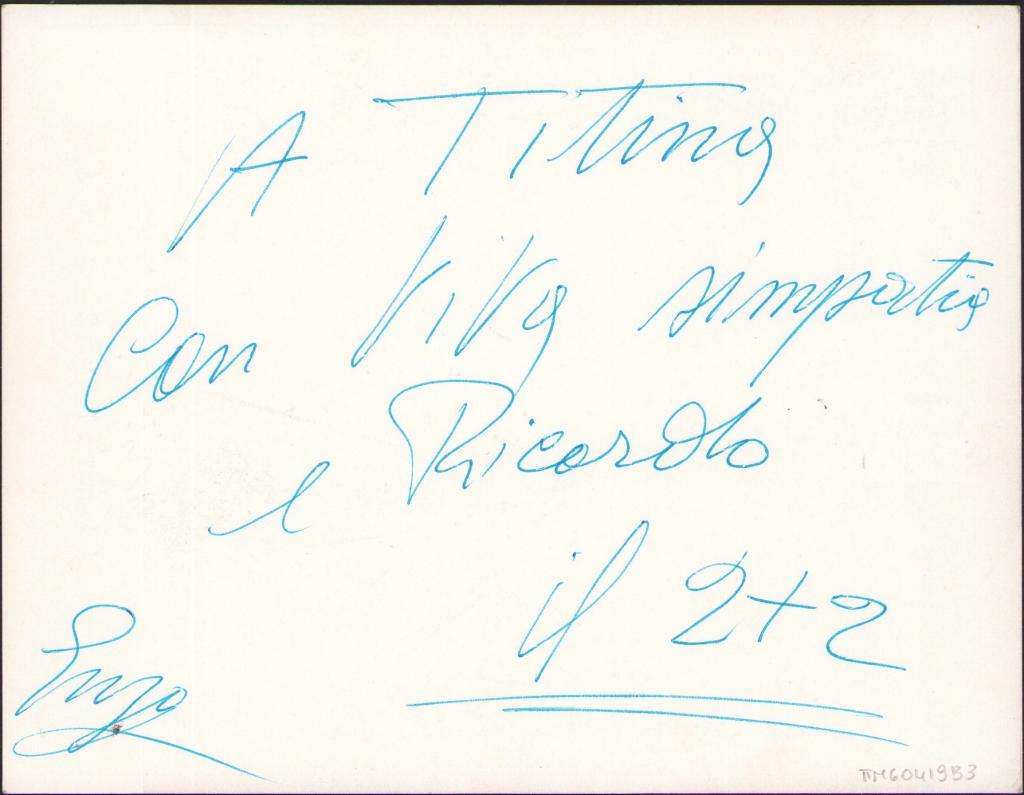 A Titina
Con viva simpatia
e Ricordo
il 2+2
Enzo
TM6041983